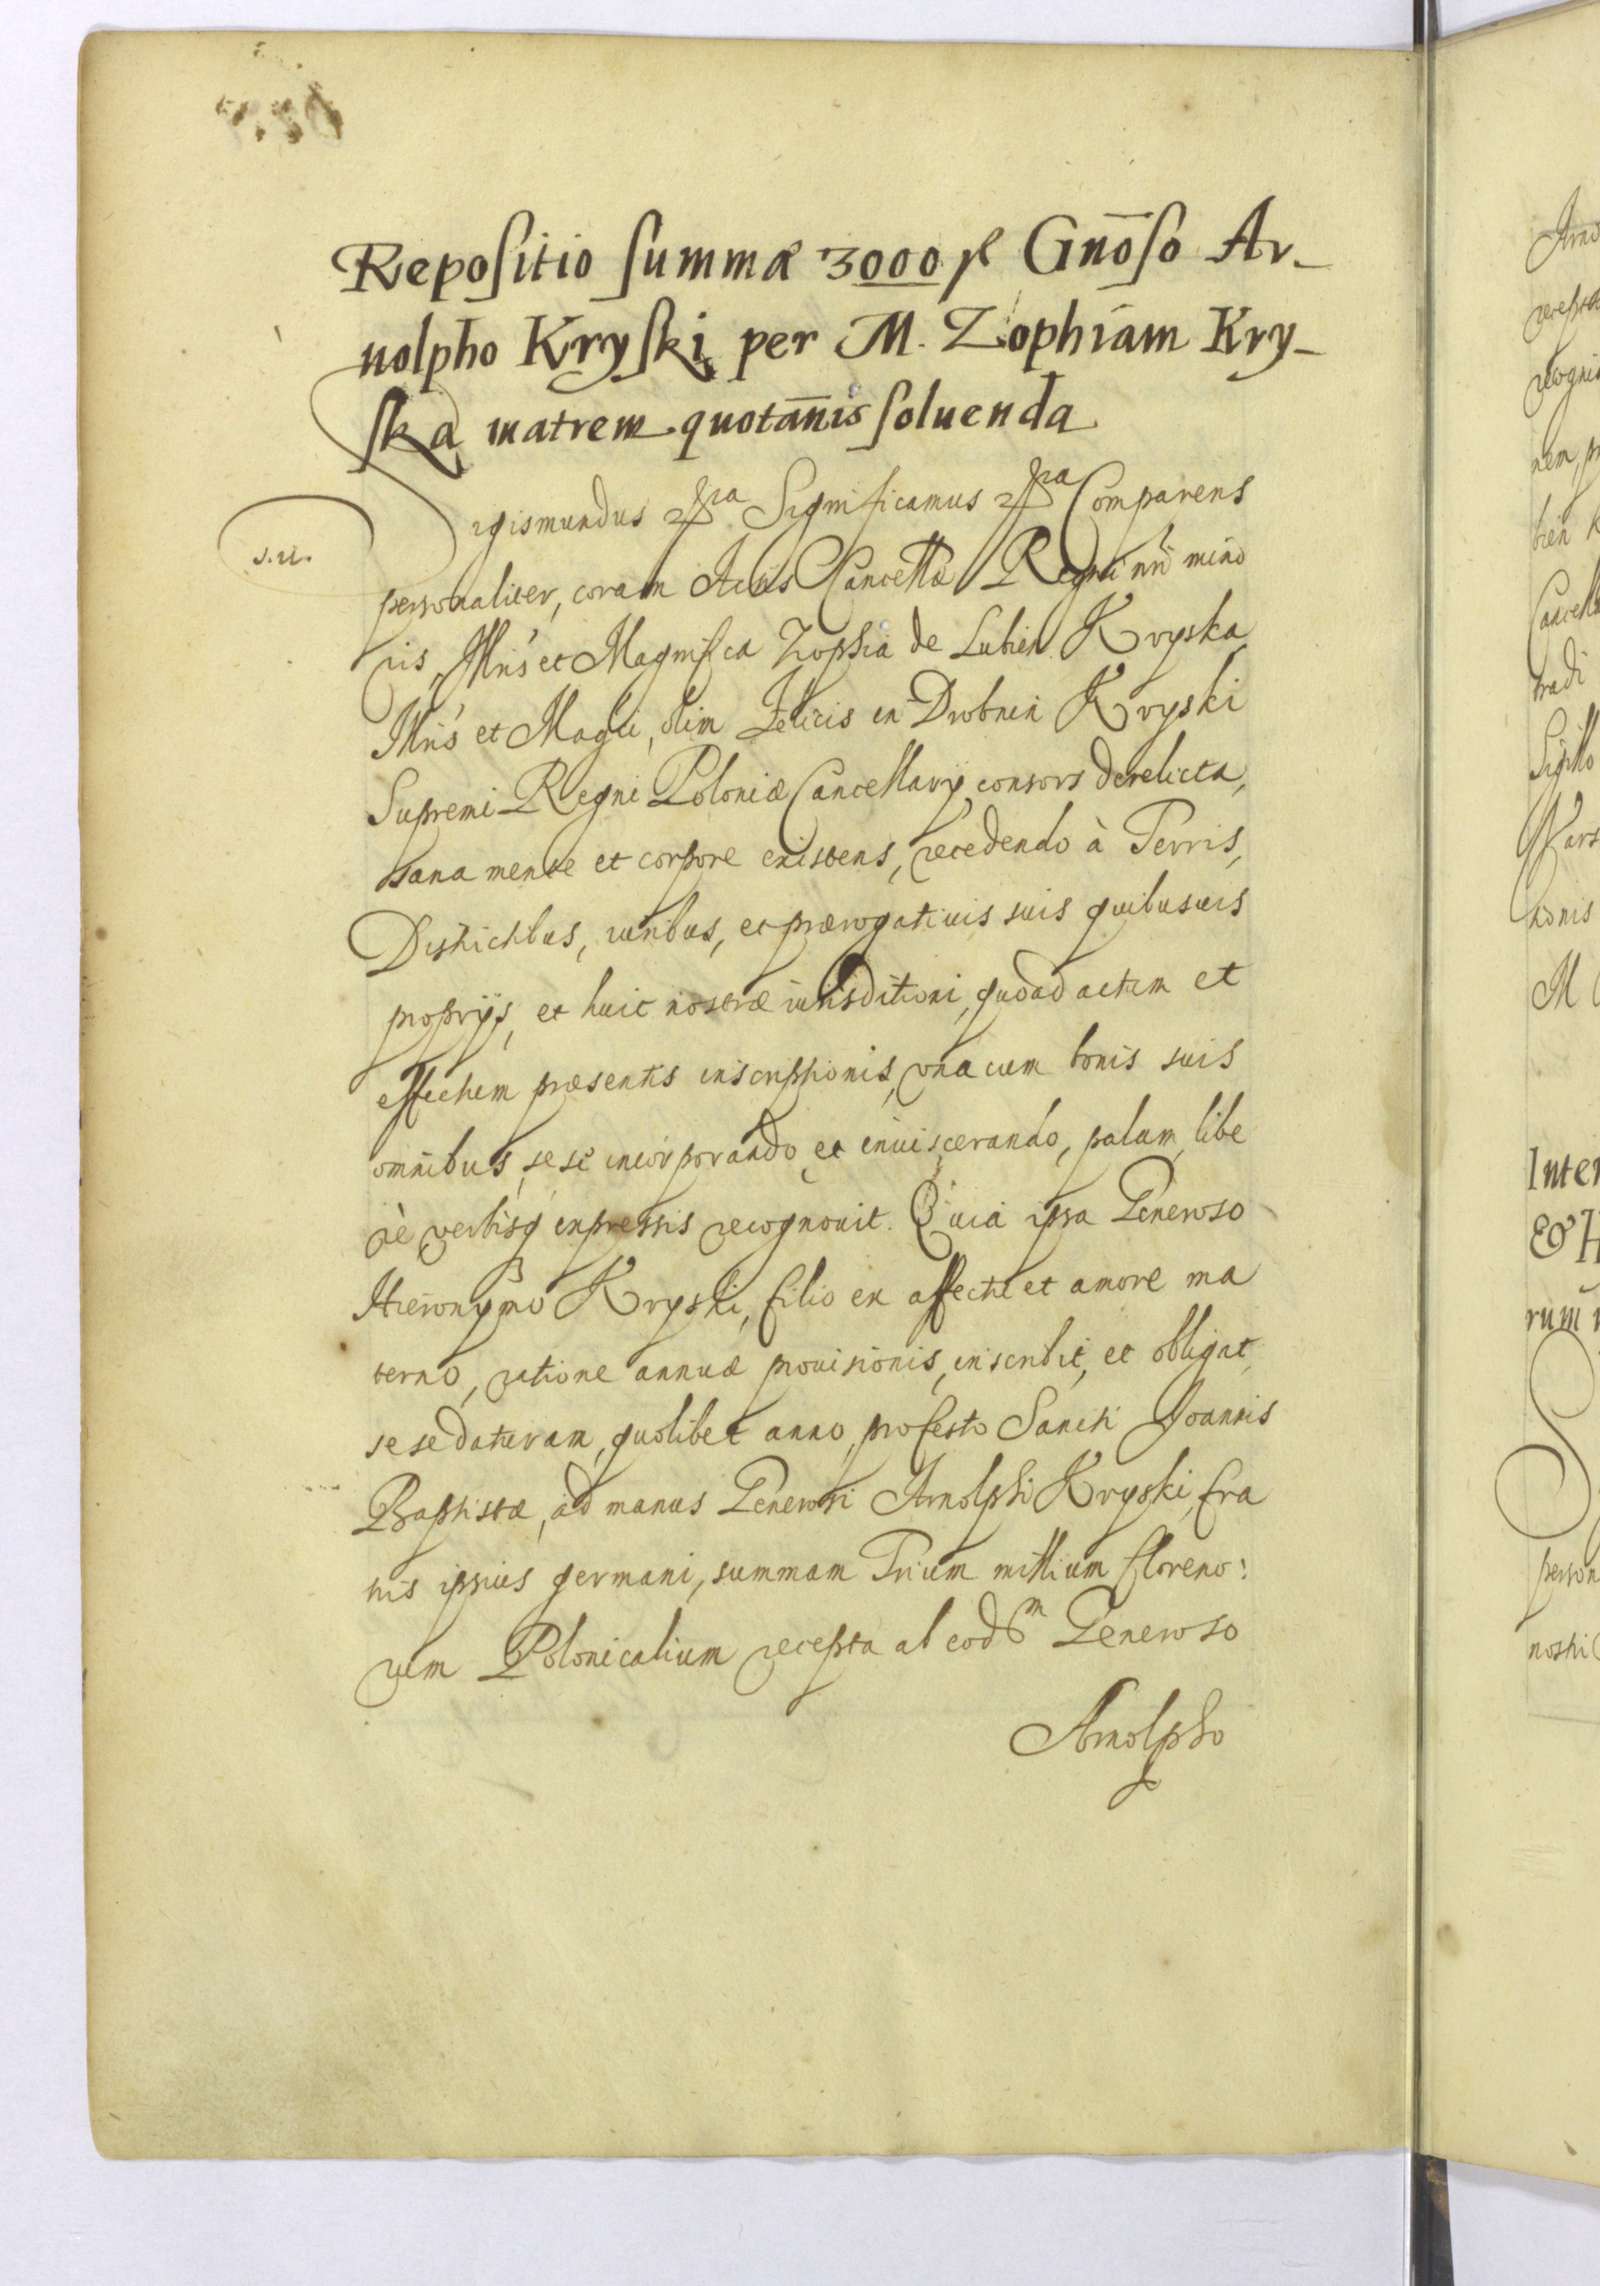 Repositio summæ 3000 fl Gnōso Ar-
nolpho Kryski per M. Zophiam Kry-
ską matrem quotan̄is soluenda
Sigismundus &ra Significamus &ra Comparens
s.n.
personaliter, coram Actis Cancellæ Regni nri mino
ris, Illris et Magnifica Zophia de Lubien Kryska,
Illris et Magci, olim Felicis in Drobnin Kryski
Supremi Regni Poloniæ Cancellarij consors derelicta,
sana mente et corpore existens, recedendo à Terris,
Districtibus, iuribus, et prærogatiuis suis quibusuis
proprijs, et huic nostræ iurisditioni, quoad actum et
effectum præsentis inscriptionis, vna cum bonis suis
omnibus, sese incorporando et inuiscerando, palam libe
rè verbisq expressis recognouit. Quia ipsa Generoso
Hieronymo Kryski, filio ex affectu et amore ma
terno, ratione annuæ prouisionis, inscribit, et obligat,
sese daturam, quolibet anno, pro festo Sancti Joannis
Baptistæ, ad manus Generosi Arnolphi Kryski, fra
tris ipsius germani, summam Trium millium floreno:
rum Polonicalium recepta ab eodm Generoso
Arnolpho
Arno
recepta
recogni
nem, p
bien K
Cancell
tradi
Sigillo
Vars
tionis
M
Inter
& H
rum
person
nostri